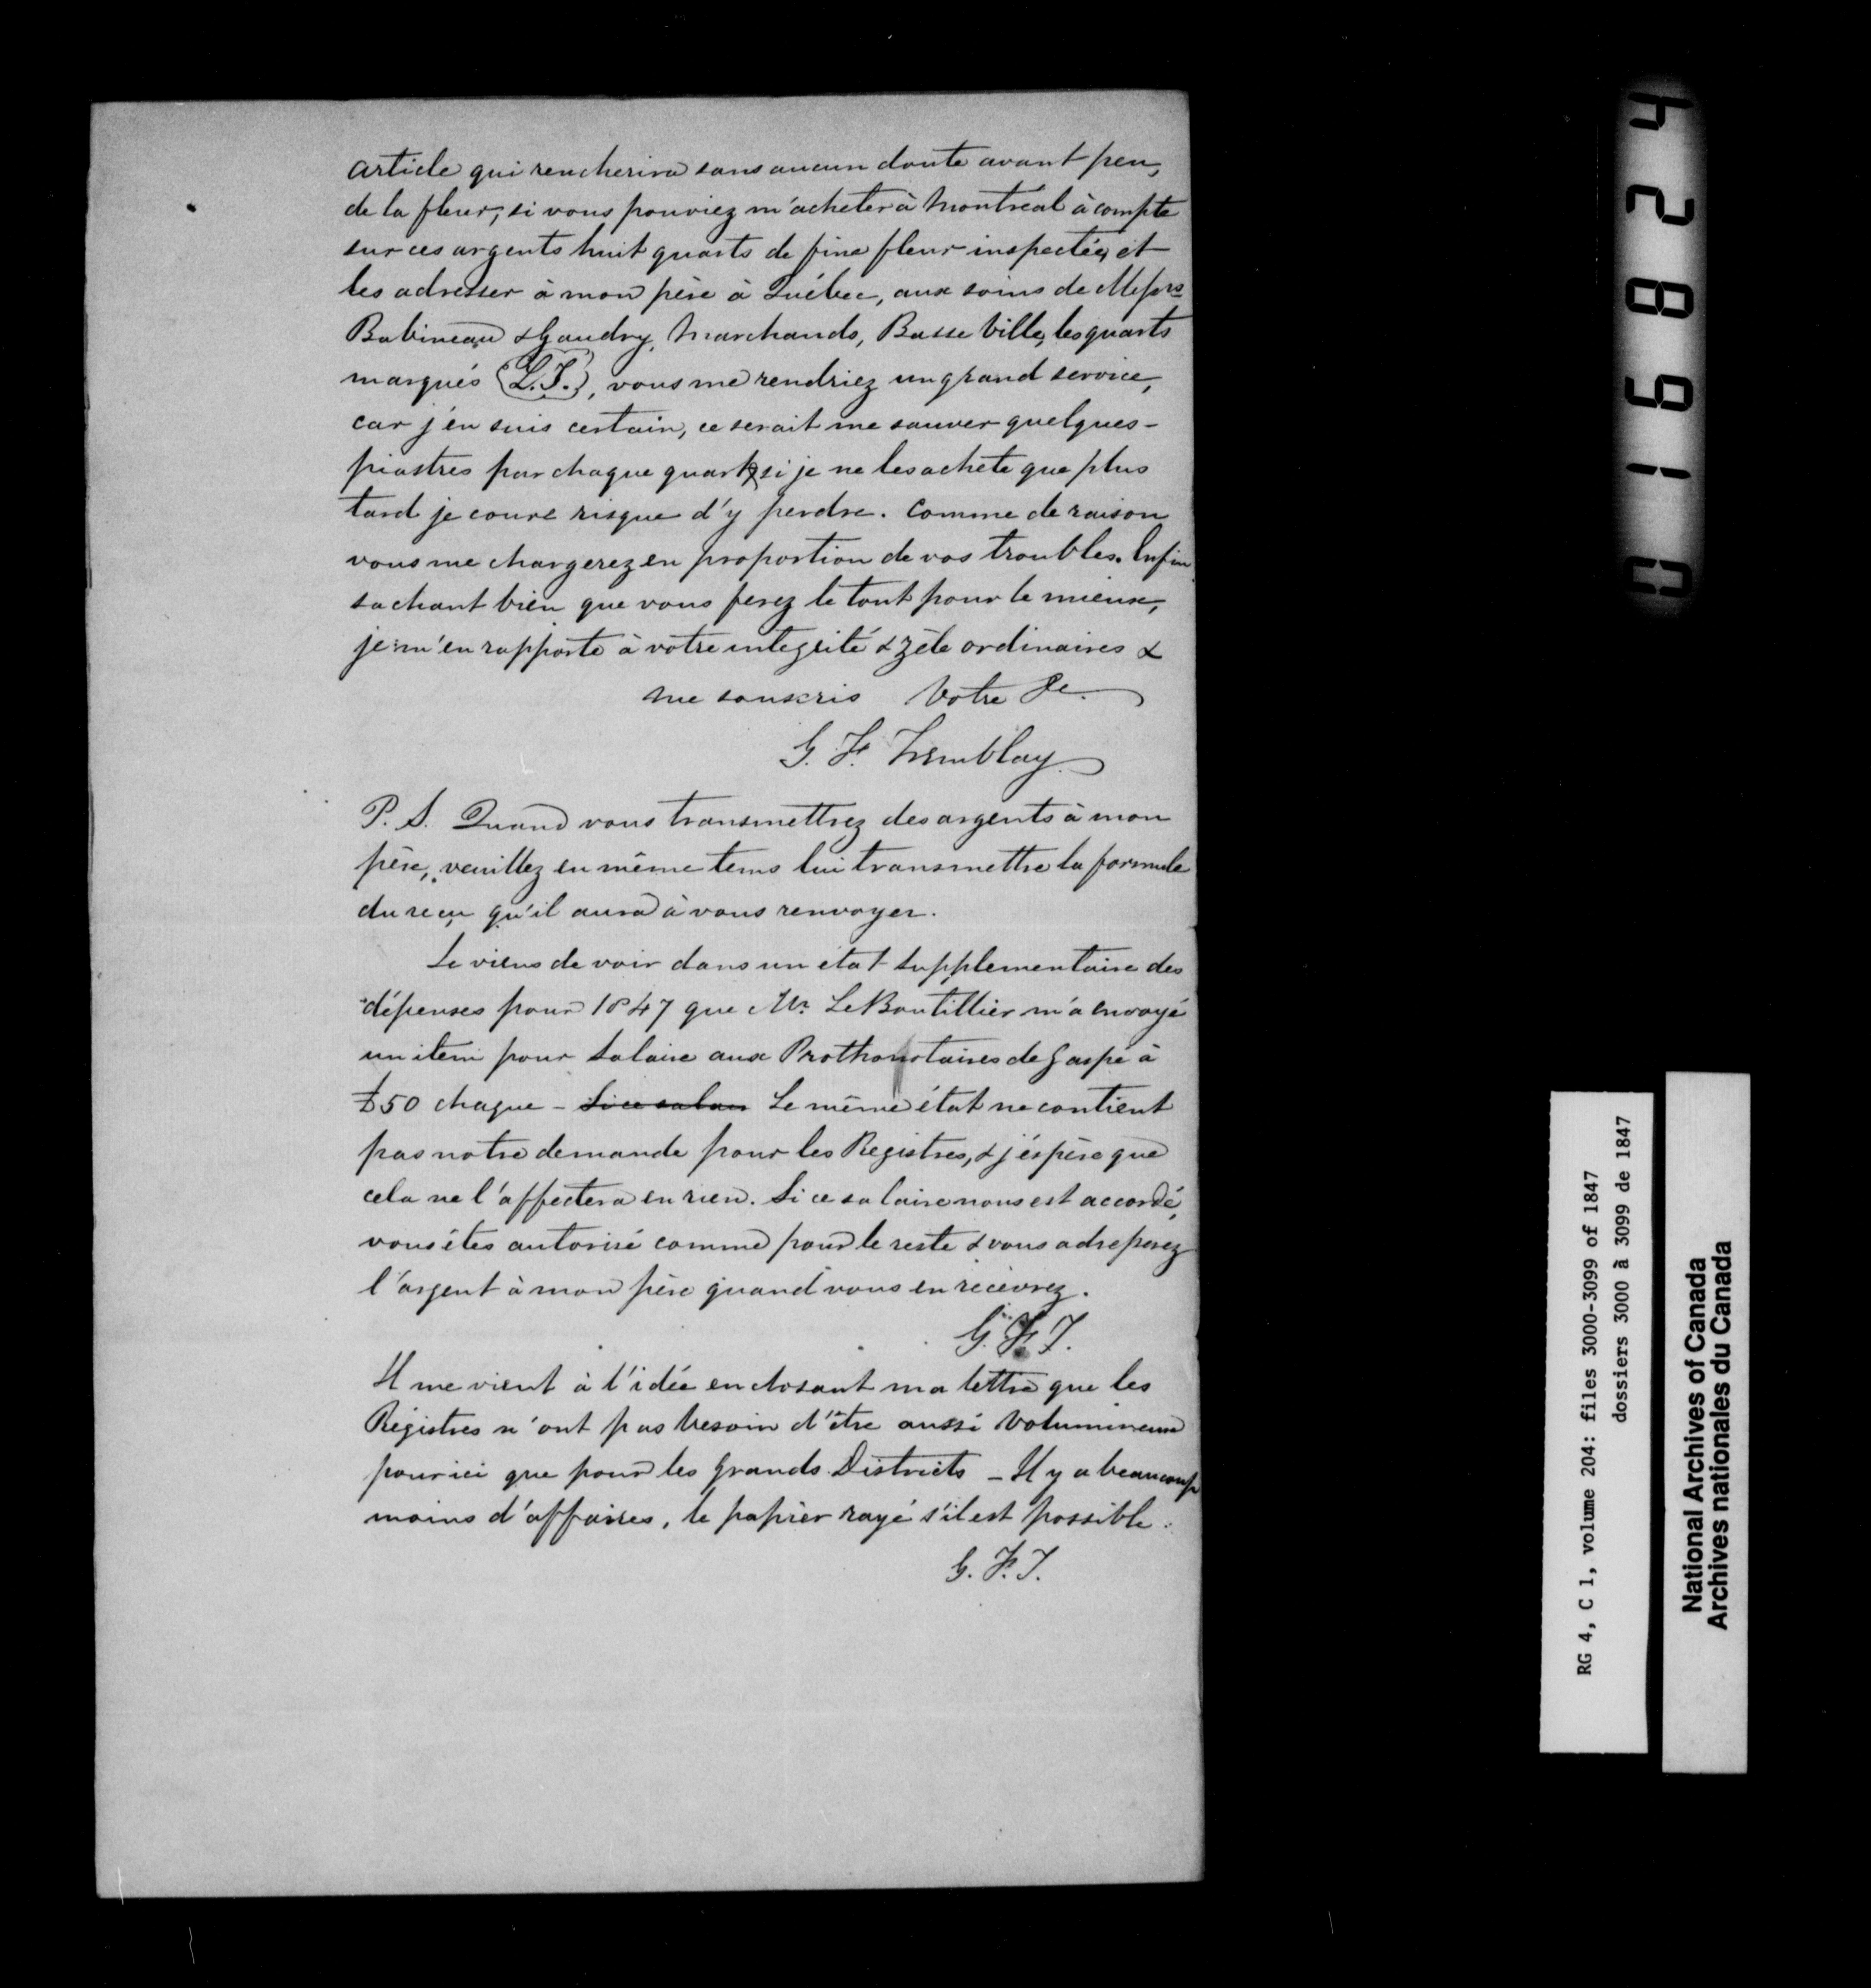 article qui rencherira sans aucun doute avant peu,
de la fleur, si vous pouviez m'acheter à Montréal à compte
sur ces argents huit quarts de fine fleur inspectée, et
les adresser à mon père à Québec, aux soins de Messrs
Babineau & Gaudry, Marchands, Basse Ville, les quarts
marqués (L.T.), vous me rendriez un grand service,
car j'en suis certain, ce serait me sauver quelques-
piastres par chaque quart & si je ne les achète que plus
tard je coure risque d'y perdre. Comme de raison
vous me chargerez en proportion de vos troubles. Enfin
sachant bien que vous ferez le tout pour le mieux,
je m'en rapporte à votre integrité & zèle ordinaires &
me souscris Votre &c.
G. F. Tremblay
P. S. Quand vous transmettrez des argents à mon
père, veuillez en même tems lui transmettre la formule
du reçu qu'il aura à vous renvoyer.
Je viens de voir dans un état supplementaire des
dépenses pour 1847 que Mr. LeBoutillier m'a envoyé
un item pour salaire aux Prothonotaires de Gaspé à
£50 chaque - Si ce salair Le même état ne contient
pas notre demande pour les Registres, & j'éspère que
cela ne l'affectera en rien. Si ce salaire nous est accordé,
vous êtes autorisé comme pour le reste & vous adresserez
l'argent à mon père quand vous en recevrez.
G. F. T.
Il me vient à l'idée en closant ma lettre que les
Régistres n'ont pas besoin d'être aussi volumineux
pour ici que pour les grands Districts - Il y a beaucoup
moins d'affaires, le papier rayé s'il est possible.
G. F. T.
016824
RG 4, C 1, volume 204: files 3000-3099 of 1847
dossiers 3000 à 3099 de 1847
National Archives of Canada
Archives nationales du Canada